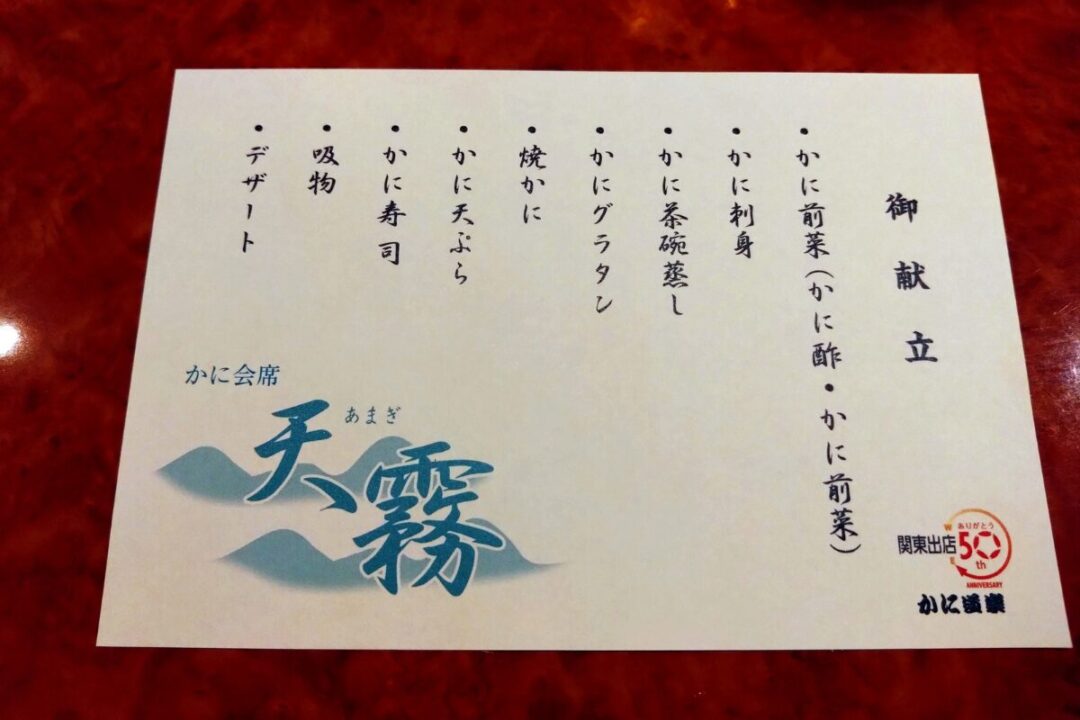 御献立
・かに前菜(かに酢・かに前菜)
・かに刺身
・かに茶碗蒸し
・かにグラタン
・焼かに
・かに天ぷら
・かに寿司
・吸物
・デザート
かに会席
あまぎ
天霧
ありがとう
関東出店
50th
ANNIVERSARY
かに道楽